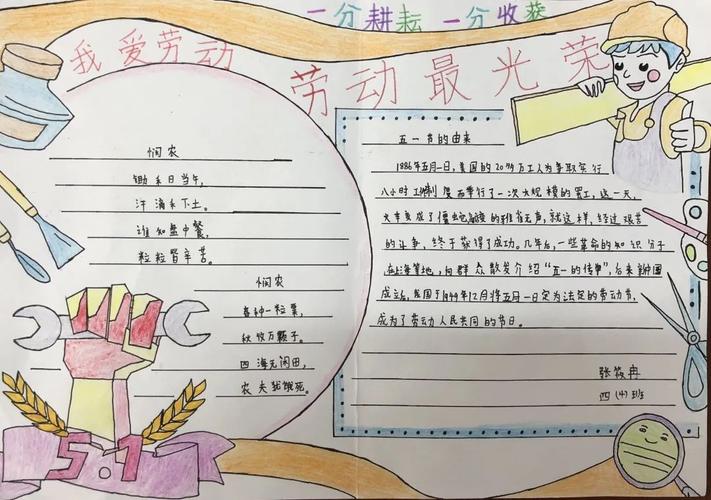 一分耕耘 一分收获
我爱劳动
劳动最光荣
悯农
锄禾日当午,
汗滴禾下土。
谁知盘中餐,
粒粒皆辛苦。
悯农
春种一粒粟,
秋收万颗子。
四海无闲田,
农夫犹饿死。
5.1
五一节的由来
1886年五月一日,美国的20多万工人为争取实行
八小时工作制 而举行了一次大规模的罢工,这一天,
就这样,经过艰苦
的斗争,终于获得了成功。几年后,一些革命的知识分子
在上海等地,向群众散发介绍“五一的传单”,后来新中国
成立后,我国于1949年12月将五月一日定为法定的劳动节,
成为了劳动人民共同的节日。
张筱冉
四(4)班